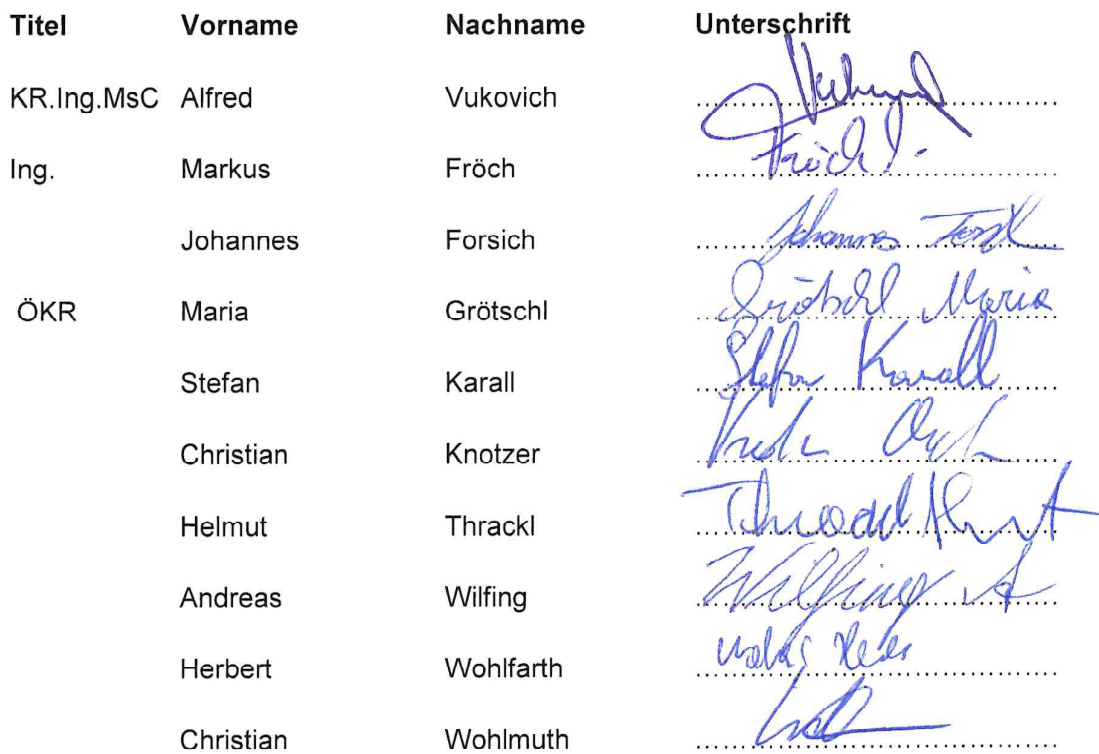 Titel Vorname Nachname Unterschrift
KR.Ing.MsC Alfred Vukovich
Ing. Markus Fröch Fröchl
Johannes Forsich Johannes
ÖKR Maria Grötschl Grötschl Maria
Stefan Karall Stefan Karall
Christian Knotzer
Helmut Thrackl
Andreas Wilfing Wilfing A
Herbert Wohlfarth
Christian Wohlmuth